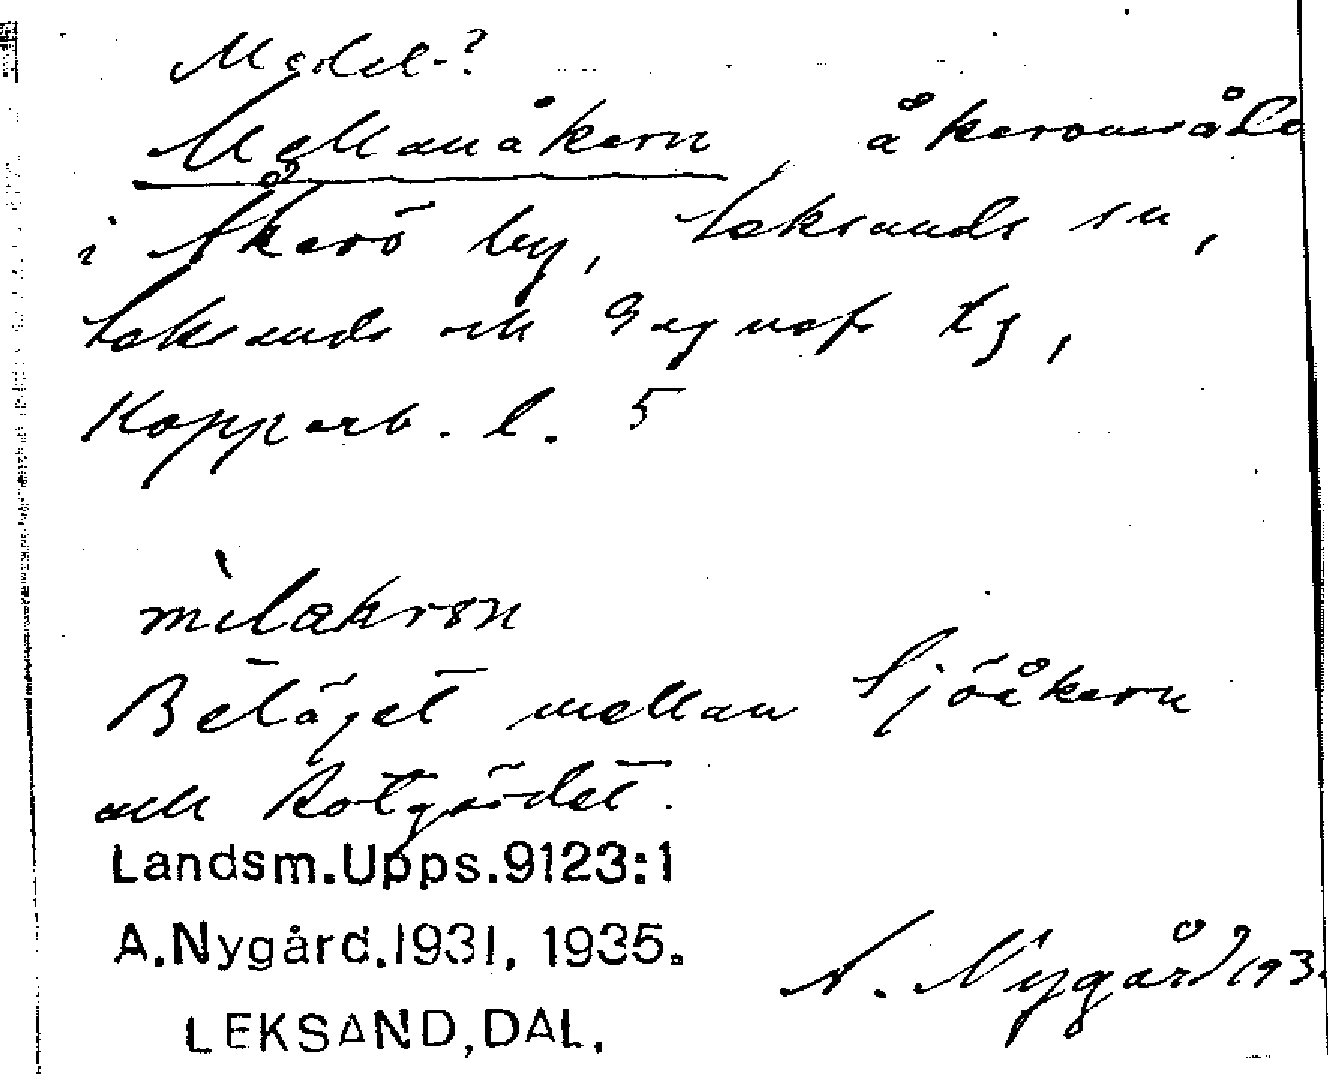 Medel-?
Mellanåkern, åkerområde
i Åkerö by, Leksands sn,
Leksands och Gagnefs tg,
Kopparb. l. 5
mìlækrən
Beläget mellan Sjöåkern
och Rotgärdet.
Landsm.Upps.9123:1
A.Nygård.1931, 1935.
LEKSAND,DAL.
A. Nygård 193